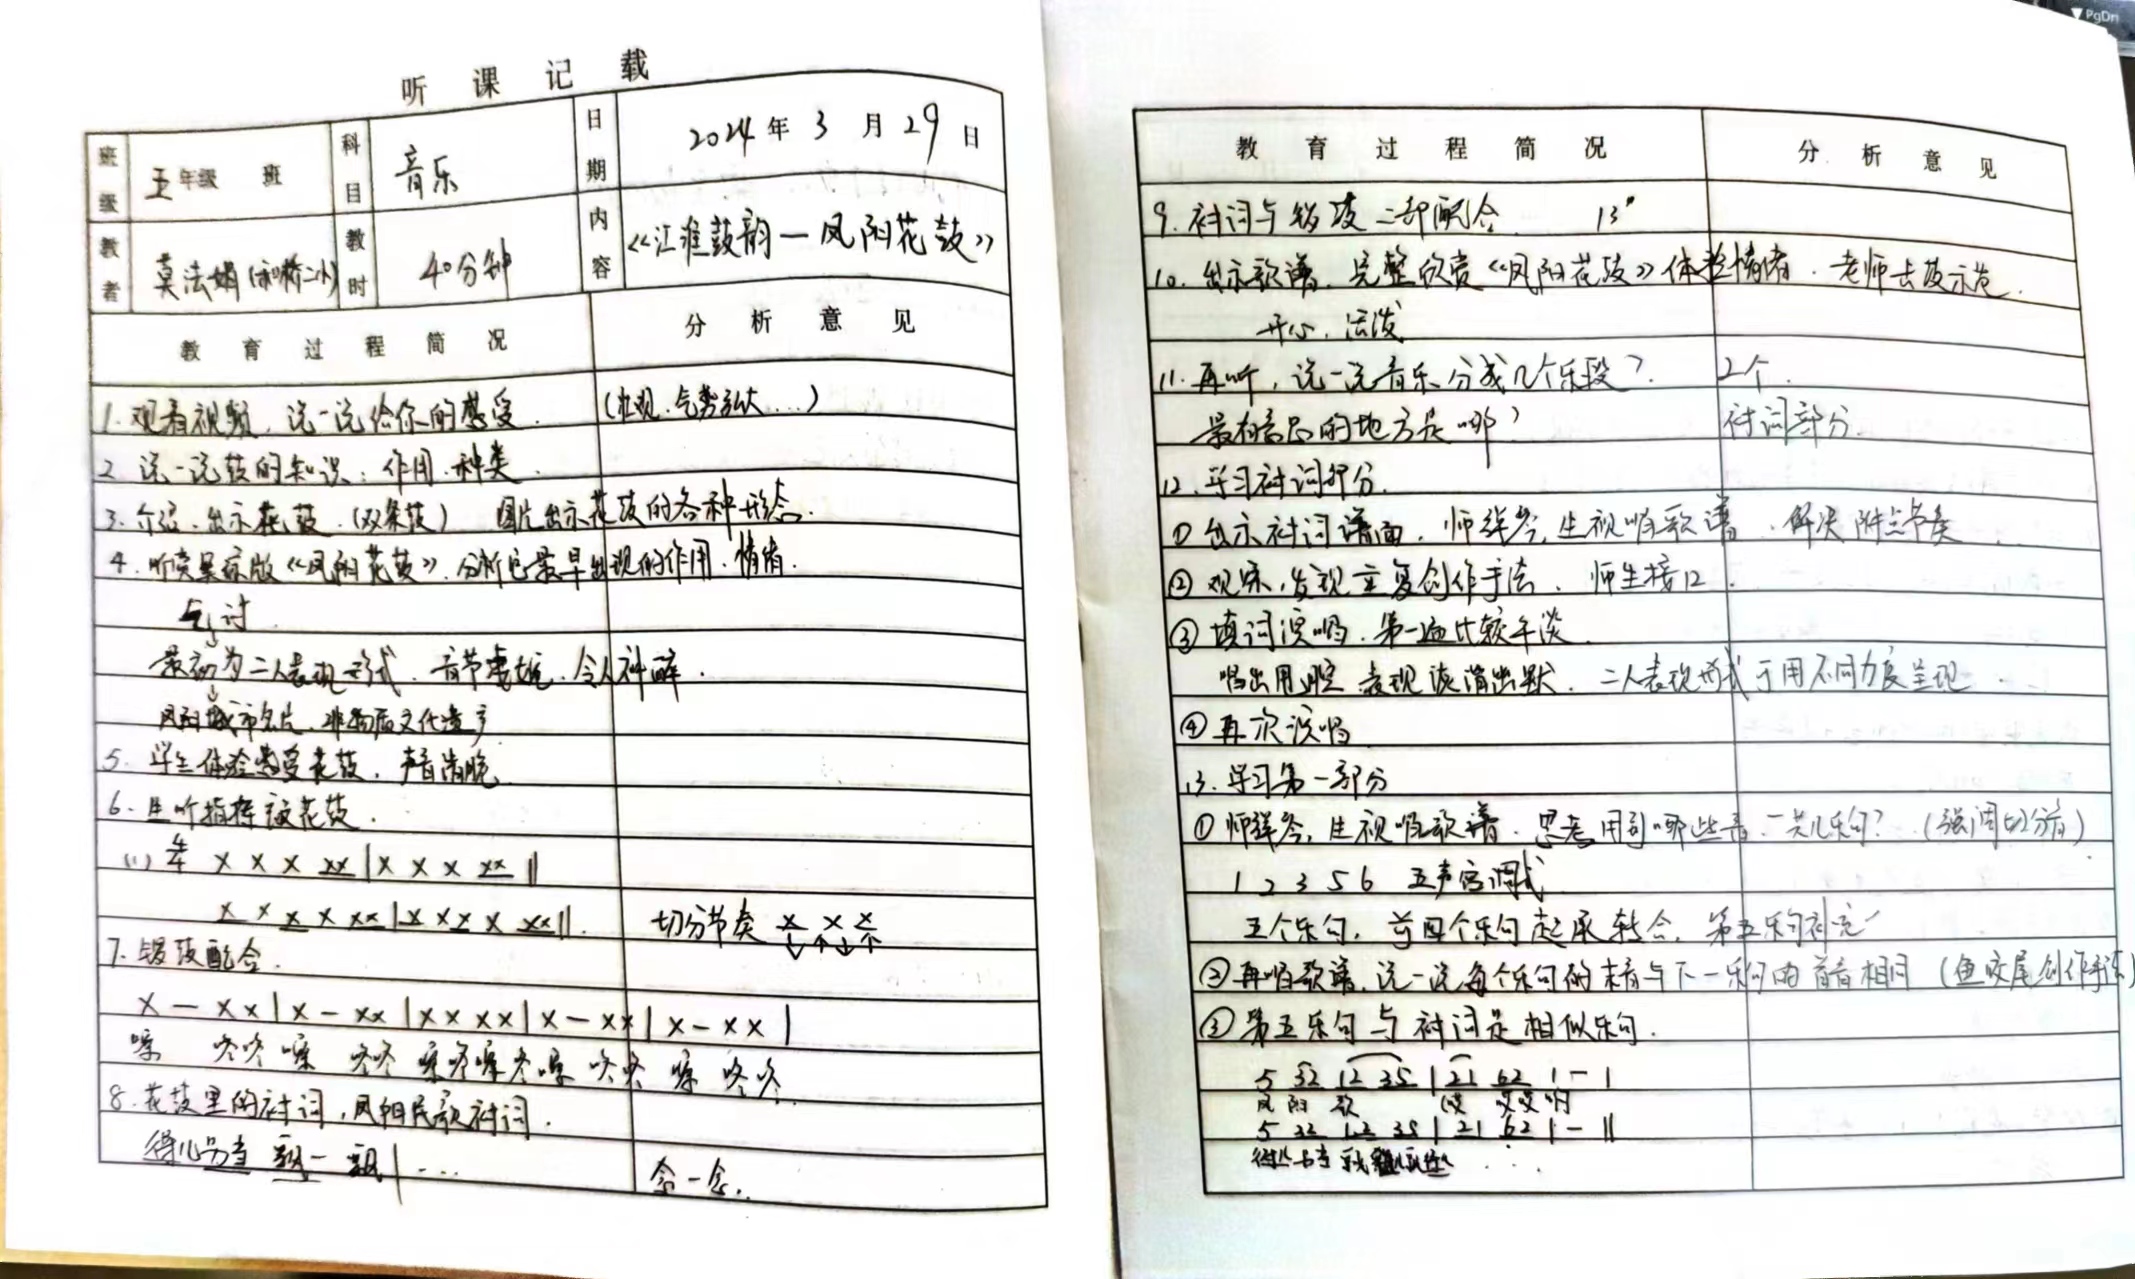 听课记载
班级 五年级 班 科目 音乐 日期 2024年3月29日
教者 莫法娟(和桥二小) 教时 40分钟 内容 《江淮鼓韵—凤阳花鼓》
教育过程简况 分析意见
1. 观看视频，说一说给你的感受. (壮观.气势弘大...)
2. 说一说鼓的知识：作用.种类.
3. 介绍.出示花鼓.(双条鼓) 图片出示花鼓的各种形态.
4. 听赏版《凤阳花鼓》.分析它最早出现的作用.情绪.
乞讨
最初为二人表现形式.音节,令人神醉.
凤阳城市名片.非物质文化遗产
5. 学生体验感受花鼓.声音清脆
6. 生听指挥敲花鼓.
(1) 4/4 X X X XX | X X X XX ||
X X X X XX | X X X X XX ||. 切分节奏 X X X
↓↑↓↑
7. 锣鼓配合.
X — X X | X — X X | X X X X | X — X X | X — X X |
咚咚 咚咚 咚 咚 咚咚 咚咚
8. 花鼓里的衬词,凤阳民歌衬词.
得儿另当 飘一飘 | ... 念一念..
教育过程简况 分析意见
9. 衬词与锣鼓二部配合 13"
10. 出示歌谱.完整欣赏《凤阳花鼓》体验情绪.老师击鼓示范.
开心.活泼
11. 再听,说一说音乐分成几个乐段? 2个.
最有意思的地方是哪? 衬词部分.
12. 学习衬词部分.
① 出示衬词谱面.师弹琴,生视唱歌谱.解决附点节奏
② 观察,发现重复创作手法.师生接口.
③ 填词演唱.第一遍比较平淡.
唱出甩腔.表现诙谐幽默.二人表现形式可用不同力度呈现.
④ 再次演唱
13. 学习第一部分
① 师弹琴,生视唱歌谱.思考用到哪些音.一共几乐句? (强调切分音)
1 2 3 5 6 五声宫调式
五个乐句.前四个乐句起承转合.第五乐句补充
② 再唱歌谱,说一说每个乐句的末音与下一乐句的首音相同 (鱼咬尾创作手法)
③ 第五乐句与衬词是相似乐句.
5 32 12 35 | 21 62 1 — |
凤 阳 歌 (哎 哎哎呀
5 32 12 35 | 21 62 1 — ||
得儿另当 飘 ...